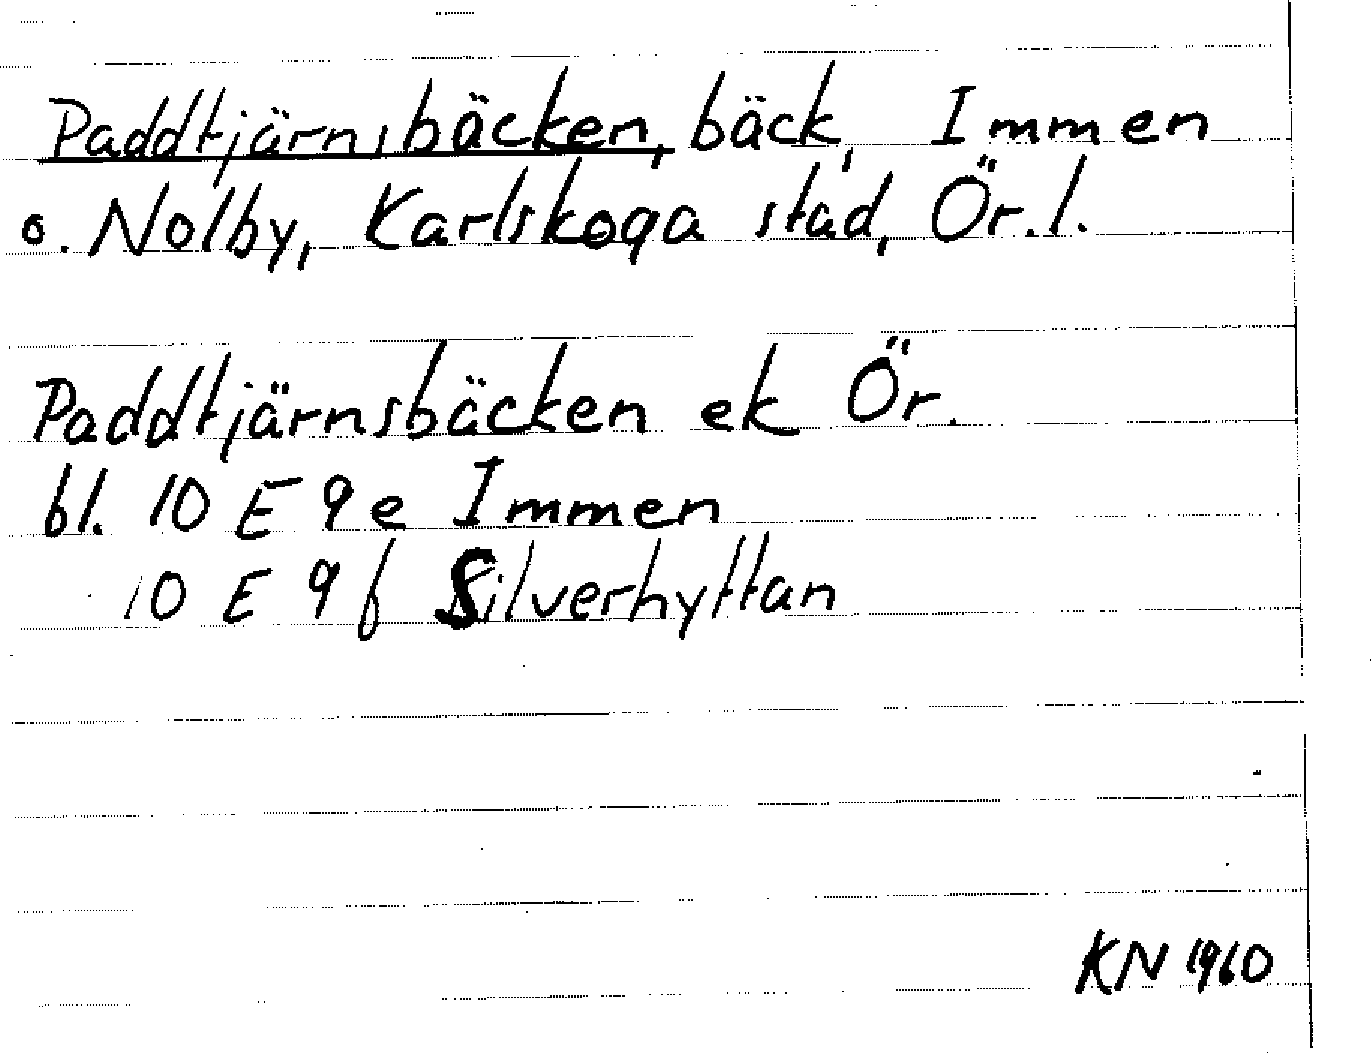 Paddtjärnsbäcken, bäck, Immen
o. Nolby, Karlskoga stad, Ör.l.
Paddtjärnsbäcken ek Ör.
bl. 10 E 9e Immen
10 E 9f Silverhyttan
KN 1960